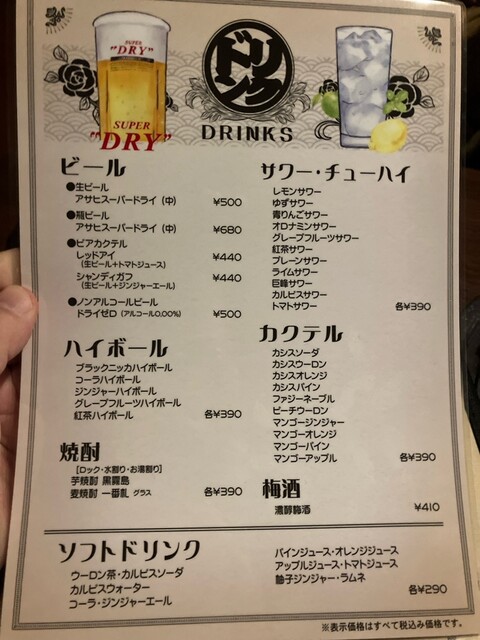 SUPER
"DRY"
SUPER
"DRY"
ドリンク
DRINKS
ビール
●生ビール
アサヒスーパードライ(中) ¥500
●瓶ビール
アサヒスーパードライ(中) ¥680
●ビアカクテル
レッドアイ ¥440
(生ビール+トマトジュース)
シャンディガフ ¥440
(生ビール+ジンジャーエール)
●ノンアルコールビール
ドライゼロ(アルコール0.00%) ¥500
ハイボール
ブラックニッカハイボール
コーラハイボール
ジンジャーハイボール
グレープフルーツハイボール
紅茶ハイボール 各¥390
焼酎
[ロック・水割り・お湯割り]
芋焼酎 黒霧島
麦焼酎 一番札 グラス 各¥390
サワー・チューハイ
レモンサワー
ゆずサワー
青りんごサワー
オロナミンサワー
グレープフルーツサワー
紅茶サワー
プレーンサワー
ライムサワー
巨峰サワー
カルピスサワー
トマトサワー 各¥390
カクテル
カシスソーダ
カシスウーロン
カシスオレンジ
カシスパイン
ファジーネーブル
ピーチウーロン
マンゴージンジャー
マンゴーオレンジ
マンゴーパイン
マンゴーアップル 各¥390
梅酒
濃醇梅酒 ¥410
ソフトドリンク
ウーロン茶・カルピスソーダ
カルピスウォーター
コーラ・ジンジャーエール
パインジュース・オレンジジュース
アップルジュース・トマトジュース
柚子ジンジャー・ラムネ
各¥290
※表示価格はすべて税込み価格です。